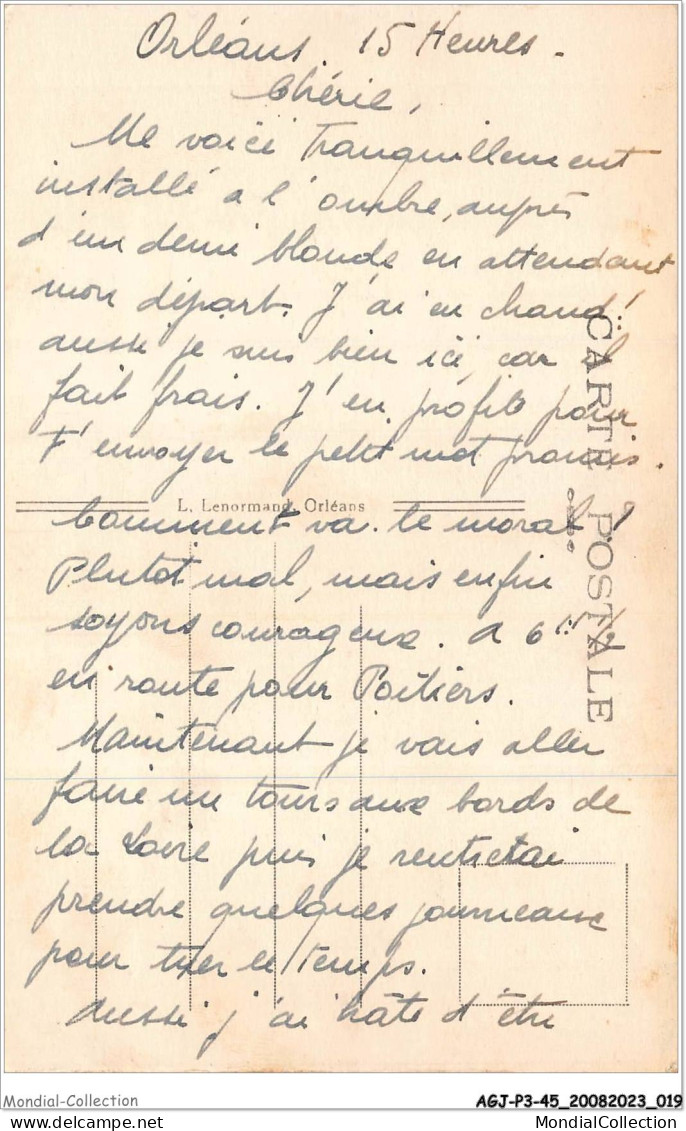 Orléans 15 Heures.
Chérie,
Me voici tranquillement
installé a l'ombre, auprès
d'un demi blonde, en attendant
mon départ. J'ai eu chaud!
aussi je suis bien ici, car il
fait frais. J'en profite pour
t'envoyer le petit mot promis.
L. Lenormand, Orléans
Comment va le moral?
Plutot mal, mais enfin
soyons courageux. a 6H 1/2
en route pour Poitiers.
Maintenant je vais aller
faire un tours aux bords de
la Loire puis je rentretai
prendre quelques journeaux
pour tuer le temps.
Aussi j'ai hâte d'être
CARTE POSTALE
Mondial-Collection
AGJ-P3-45_20082023_019
MondialCollection